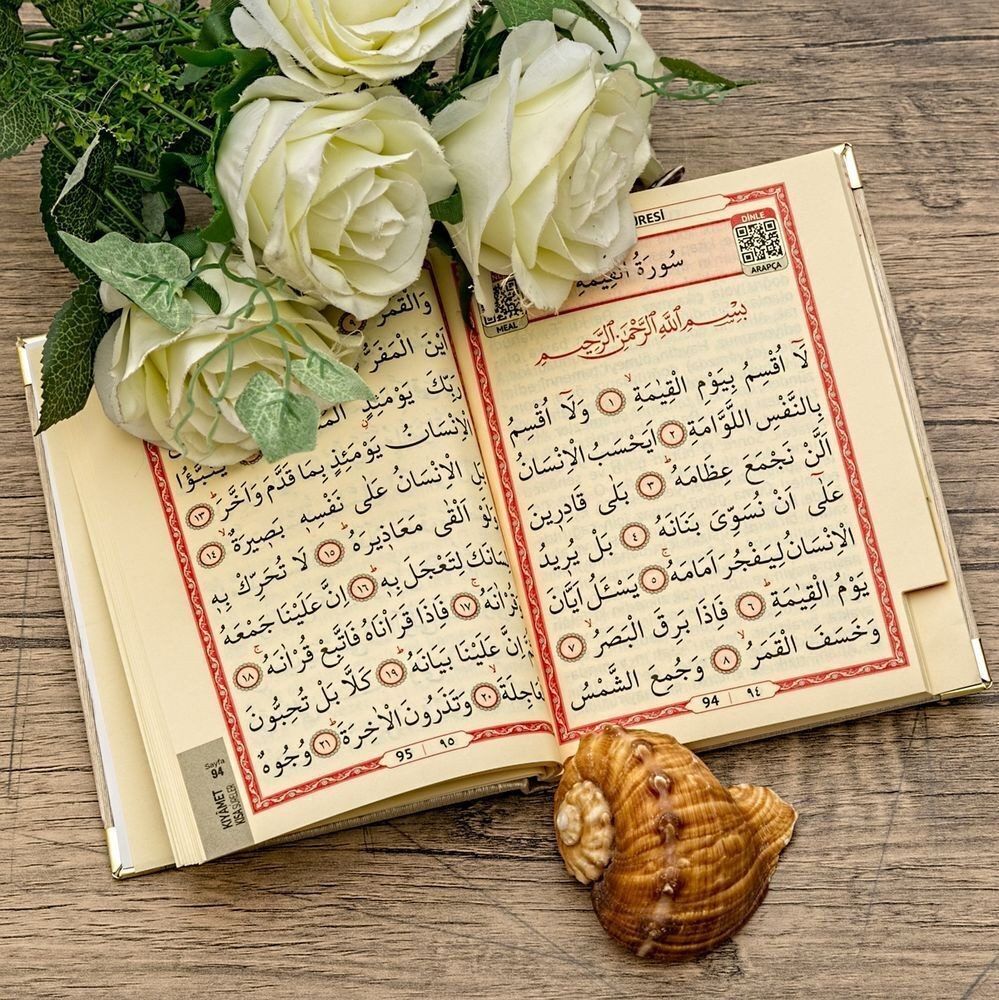 RESİ
DİNLE
ARAPÇA
MEAL
سُورَةُ الْقِيٰمَةِ
بِسْمِ اللّٰهِ الرَّحْمٰنِ الرَّحِيمِ
لَٓا اُقْسِمُ بِيَوْمِ الْقِيٰمَةِۙ ﴿١﴾ وَلَٓا اُقْسِمُ
بِالنَّفْسِ اللَّوَّامَةِ ﴿٢﴾ اَيَحْسَبُ الْاِنْسَانُ
اَلَّنْ نَجْمَعَ عِظَامَهُۜ ﴿٣﴾ بَلٰى قَادِرِينَ
عَلٰٓى اَنْ نُسَوِّىَ بَنَانَهُ ﴿٤﴾ بَلْ يُرِيدُ
الْاِنْسَانُ لِيَفْجُرَ اَمَامَهُۚ ﴿٥﴾ يَسْـَٔلُ اَيَّانَ
يَوْمُ الْقِيٰمَةِۜ ﴿٦﴾ فَاِذَا بَرِقَ الْبَصَرُۙ ﴿٧﴾
وَخَسَفَ الْقَمَرُۙ ﴿٨﴾ وَجُمِعَ الشَّمْسُ
94 | ٩٤
وَالْقَمَرُ
اَيْنَ الْمَفَرُّ
رَبِّكَ يَوْمَئِذٍ
يُنَبَّؤُا الْاِنْسَانُ يَوْمَئِذٍ بِمَا قَدَّمَ وَاَخَّرَۜ ﴿١٣﴾
بَلِ الْاِنْسَانُ عَلٰى نَفْسِهِ بَصِيرَةٌۙ ﴿١٤﴾
وَلَوْ اَلْقٰى مَعَاذِيرَهُۜ ﴿١٥﴾ لَا تُحَرِّكْ بِهِ
لِسَانَكَ لِتَعْجَلَ بِهِۜ ﴿١٦﴾ اِنَّ عَلَيْنَا جَمْعَهُ
وَقُرْاٰنَهُۚ ﴿١٧﴾ فَاِذَا قَرَأْنَاهُ فَاتَّبِعْ قُرْاٰنَهُۚ ﴿١٨﴾
ثُمَّ اِنَّ عَلَيْنَا بَيَانَهُۜ ﴿١٩﴾ كَلَّا بَلْ تُحِبُّونَ
الْعَاجِلَةَۙ ﴿٢٠﴾ وَتَذَرُونَ الْاٰخِرَةَۜ ﴿٢١﴾ وُجُوهٌ
95 | ٩٥
Sayfa
94
KIYAMET
KISA SURELER